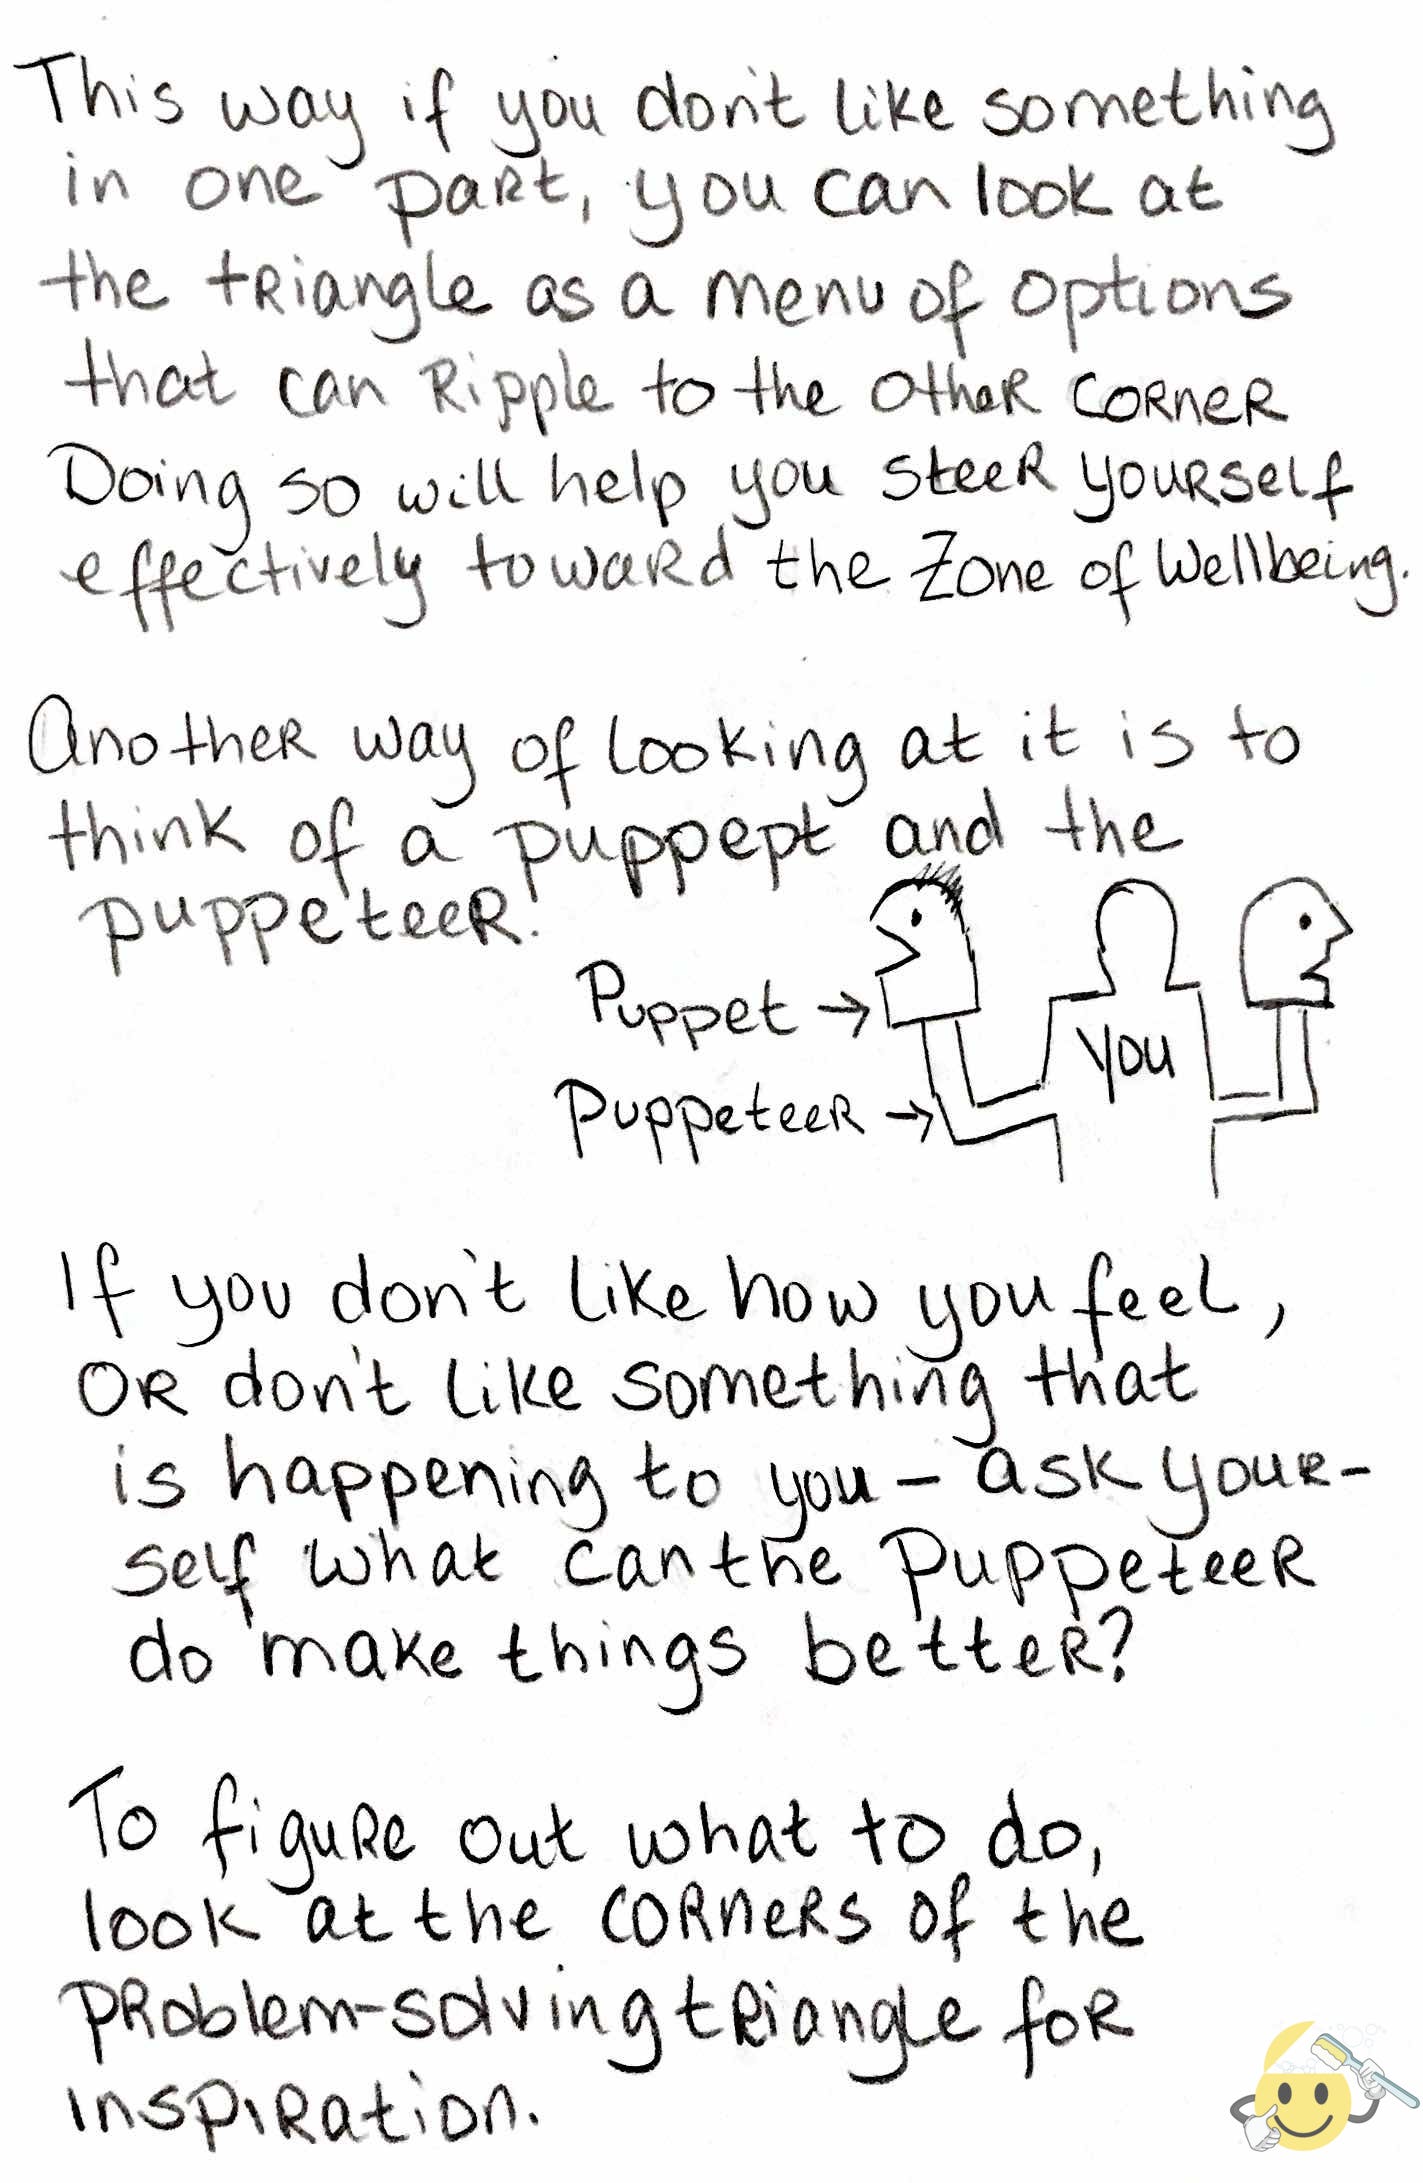 This way if you don't like something
in one part, you can look at
the triangle as a menu of options
that can Ripple to the other corner
Doing so will help you steer yourself
effectively toward the Zone of Wellbeing.
Another way of looking at it is to
think of a puppept and the
puppeteer.
Puppet →
YOU
Puppeteer →
If you don't like how you feel,
or don't like something that
is happening to you – ask your-
self what can the Puppeteer
do make things better?
To figure out what to do,
look at the corners of the
problem-solving triangle for
inspiration.